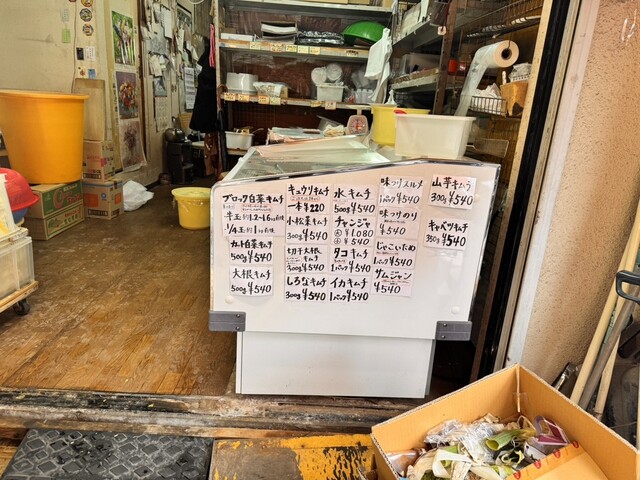 ブロック白菜キムチ
半玉約1.2~1.6kg前後
1/4玉約1kg前後
カット白菜キムチ
500g ¥540
大根キムチ
500g ¥540
キュウリキムチ
一本 ¥220
小松菜キムチ
300g ¥540
切干大根
キムチ
300g ¥540
しろなキムチ
300g ¥540
水キムチ
500g ¥540
チャンジャ
大 ¥1,080
小 ¥540
タコキムチ
1パック ¥540
イカキムチ
1パック ¥540
味つけスルメ
1パック ¥540
味つけのり
¥540
じゃこいため
1パック ¥540
サムジャン
¥540
山芋キムチ
300g ¥540
キャベツキムチ
350g ¥540